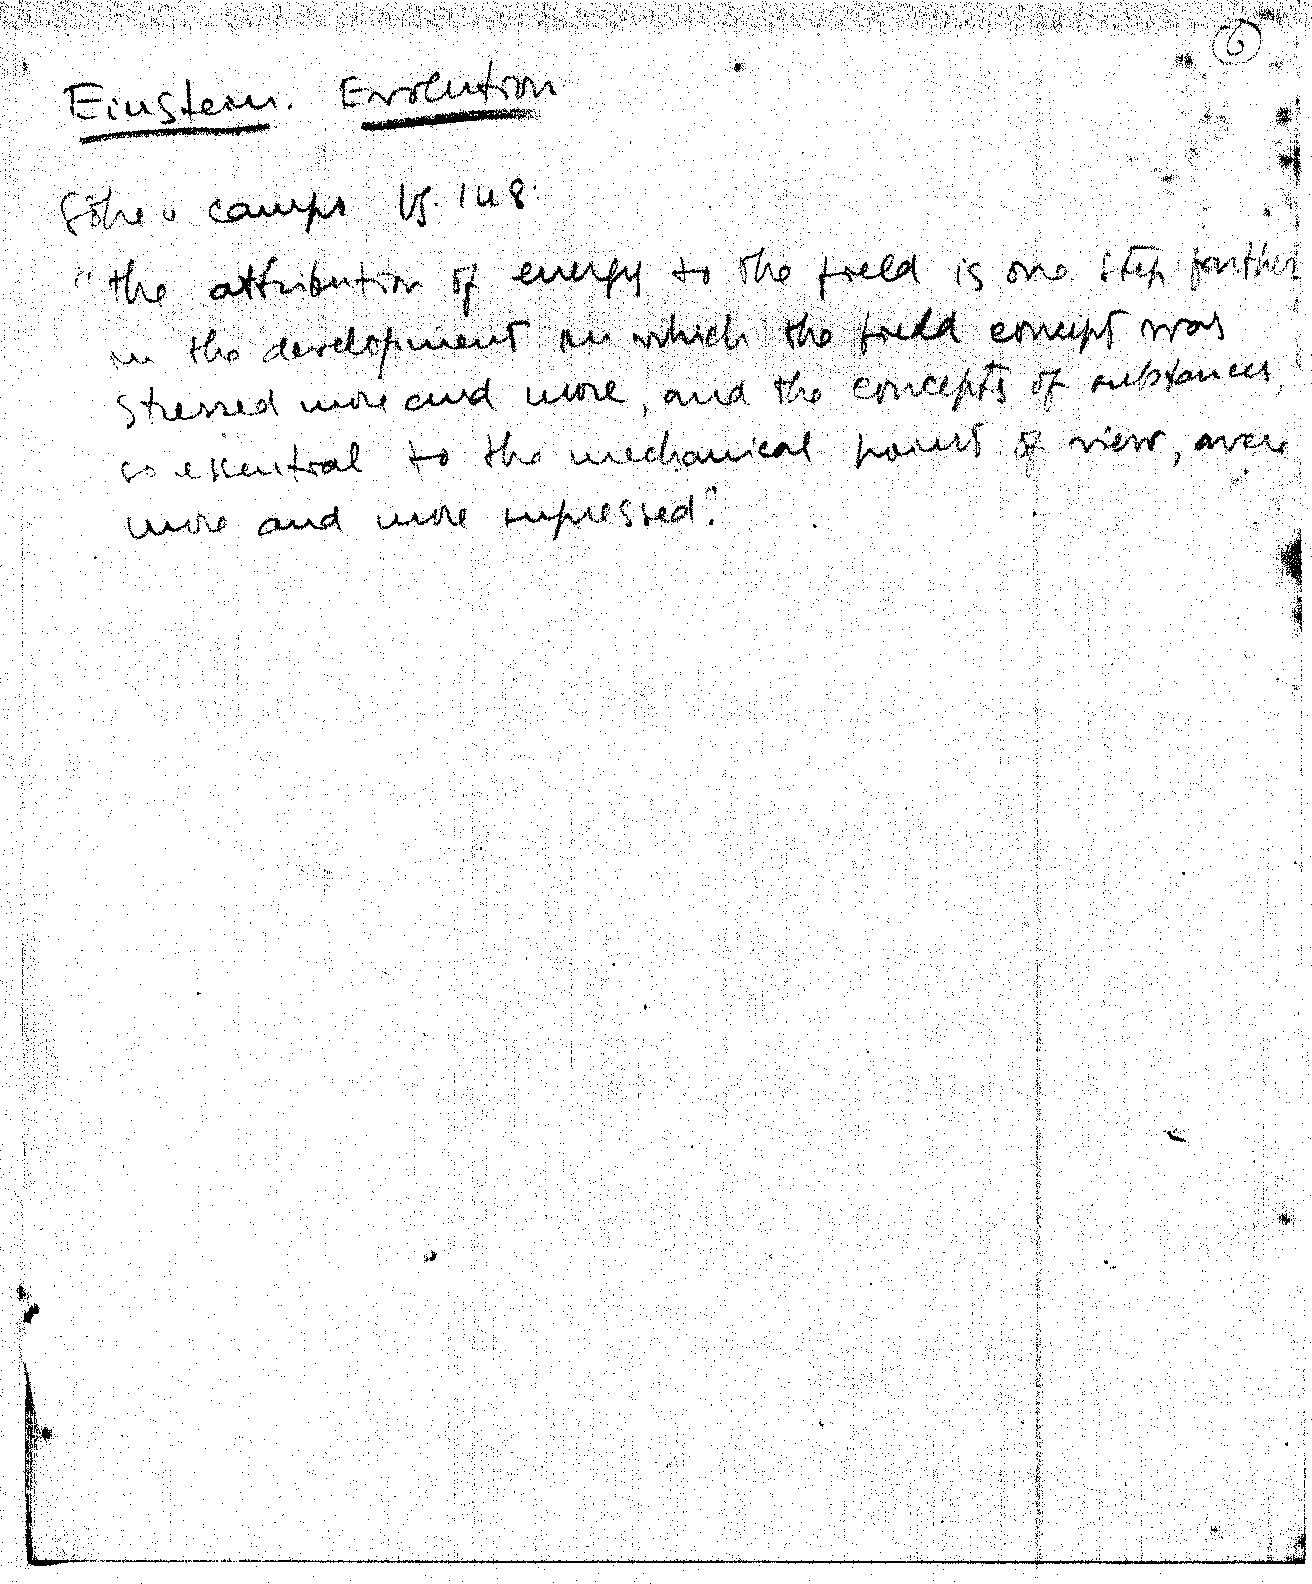 6
Einstein. Evolution
camps pg. 148.
"the attribution of energy to the field is one step further
in the development in which the field concept was
stressed more and more, and the concepts of substances,
so essential to the mechanical point of view, were
more and more supressed."